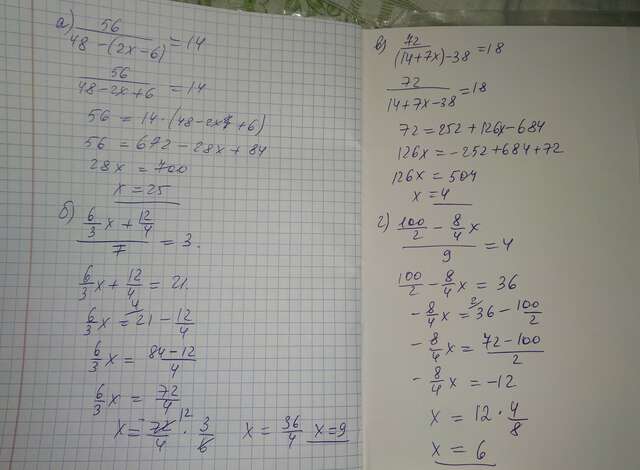 а) 56/(48-(2x-6)) = 14
56/(48-2x+6) = 14
56 = 14·(48-2x+6)
56 = 672-28x+84
28x = 700
x = 25
б) (6/3 x + 12/4)/7 = 3.
6/3 x + 12/4 = 21.
6/3 x = 21 - 12/4
6/3 x = (84-12)/4
6/3 x = 72/4
x = 72/4 · 3/6 x = 36/4 x=9
в) 72/((14+7x)-38) = 18
72/(14+7x-38) = 18
72 = 252+126x-684
126x = -252+684+72
126x = 504
x = 4
г) (100/2 - 8/4 x)/9 = 4
100/2 - 8/4 x = 36
- 8/4 x = 36 - 100/2
- 8/4 x = (72-100)/2
- 8/4 x = -12
x = 12 · 4/8
x = 6